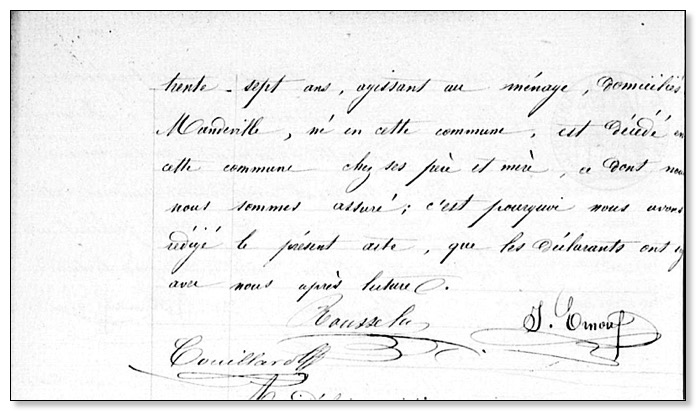 trente-sept ans, agissant au ménage, domiciliés
Mandeville, né en cette commune, est décédé en
cette commune chez ses père et mère, ce dont nous
nous sommes assuré; c'est pourquoi nous avons
rédigé le présent acte, que les déclarants ont
avec nous après lecture.
J. Ernouf
Couillard